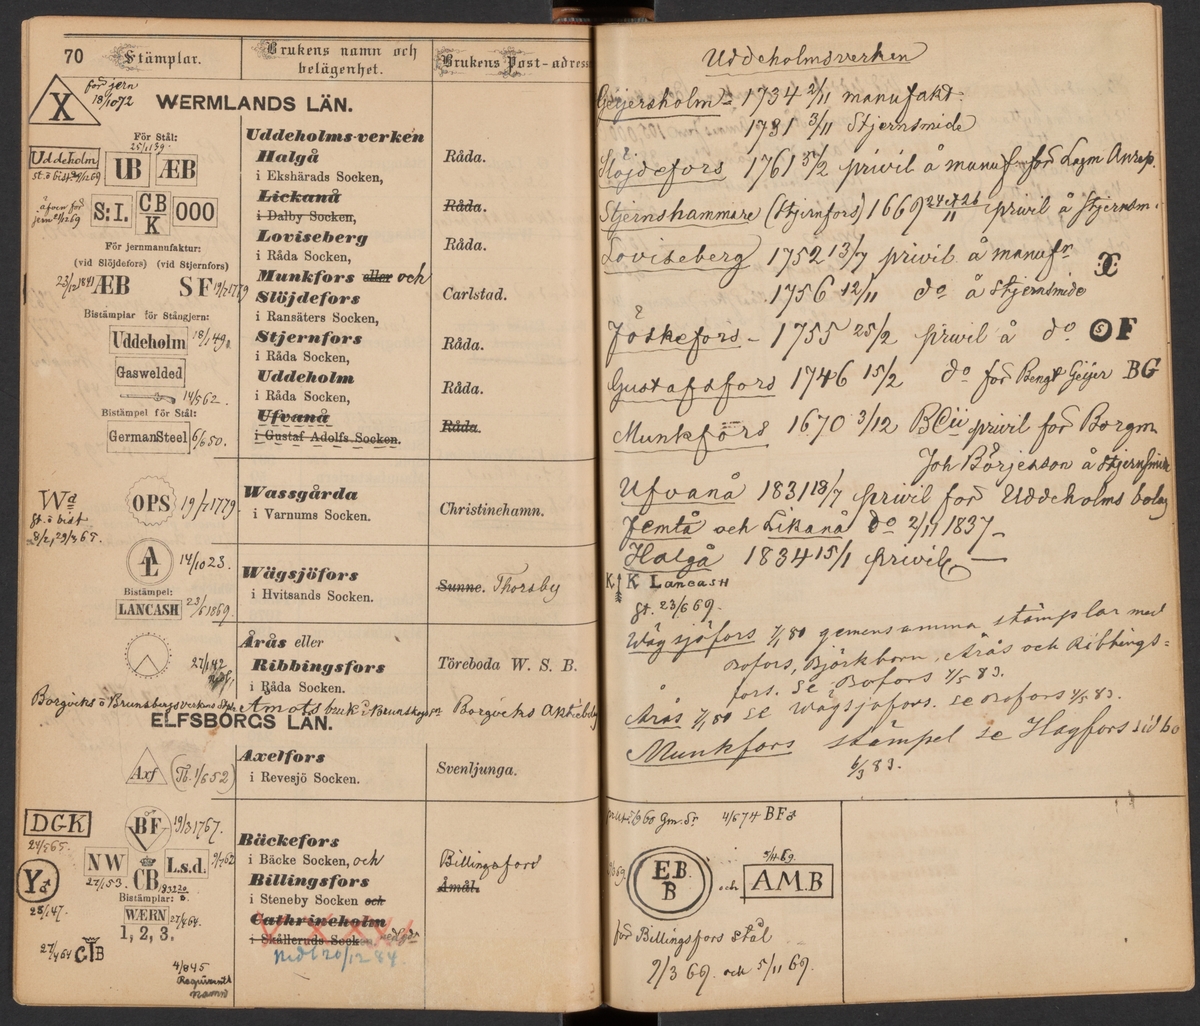 70 Stämplar.
Brukens namn och
belägenhet.
Brukens Post-adress
X
för jern
18/10 72
WERMLANDS LÄN.
För Stål:
25/1 39.
Uddeholm
UB ÆB
S:I. CB
K
000
äfven för
För jernmanufaktur:
(vid Slöjdefors) (vid Stjernfors)
ÆB SF
Bistämplar för Stångjern:
Uddeholm
Gaswelded
14/5 62.
Bistämpel för Stål:
GermanSteel 6/6 50.
Uddeholms-verken
Halgå
i Ekshärads Socken,
Råda.
Lickanå
i Dalby Socken,
Råda.
Loviseberg
i Råda Socken,
Råda.
Munkfors eller och
Slöjdefors
i Ransäters Socken,
Carlstad.
Stjernfors
i Råda Socken,
Råda.
Uddeholm
i Råda Socken,
Råda.
Ufvanå
i Gustaf Adolfs Socken.
Råda.
OPS 19/7 1779
Wassgårda
i Varnums Socken.
Christinehamn.
AL 14/10 23.
Bistämpel:
LANCASH 23/6 1869.
Wägsjöfors
i Hvitsands Socken.
Sunne. Thorsby
Årås eller
Ribbingsfors
i Råda Socken.
Töreboda W. S. B.
ELFSBORGS LÄN.
Axf
Axelfors
i Revesjö Socken.
Svenljunga.
DGK
BF 19/3 1767.
NW CB L.s.d.
Bistämplar:
WÆRN
1, 2, 3.
Bäckefors
i Bäcke Socken, och
Billingsfors
i Steneby Socken och
Cathrineholm
i Skålleruds Socken
Billingsfors
Åmål.
nedl 20/12 84.
Uddeholmsverken
Geijersholm 1734 2/11 manufakt:
1731 3/11 Stjernsmide
Slöjdefors 1761 privil å manuf för Lagm Anrep.
Stjernshammare (Stjernfors) 1669 privil å Stjernsm.
Loviseberg 1752 13/7 privil å manufr
1756 12/11 do å Stjernsmide
Föskefors - 1755 25/2 privil å do SF
Gustafsfors 1746 15/2 do för Bengt Geijer BG
Munkfors 1670 3/12 privil för Borgm
Joh Börjesson å Stjernsmide
Ufvanå 1831 18/7 privil för Uddeholms bolag
Femtå och Likanå do 2/11 1837
Halgå 1834 15/1 privil.
K K LANCASH
st. 23/6 69.
Wägsjöfors 7/1 80 gemensamma stämplar med
Bofors, Björkborn, Årås och Ribbings=
fors. se Bofors 7/5 83.
Årås 7/1 80 se Wägsjöfors. se Bofors 7/5 83.
Munkfors stämpel se Hagfors sid 60
6/3 83.
4/6 74 BF
EB
B
och
AMB
för Billingsfors stål
9/3 69. och 5/11 69.